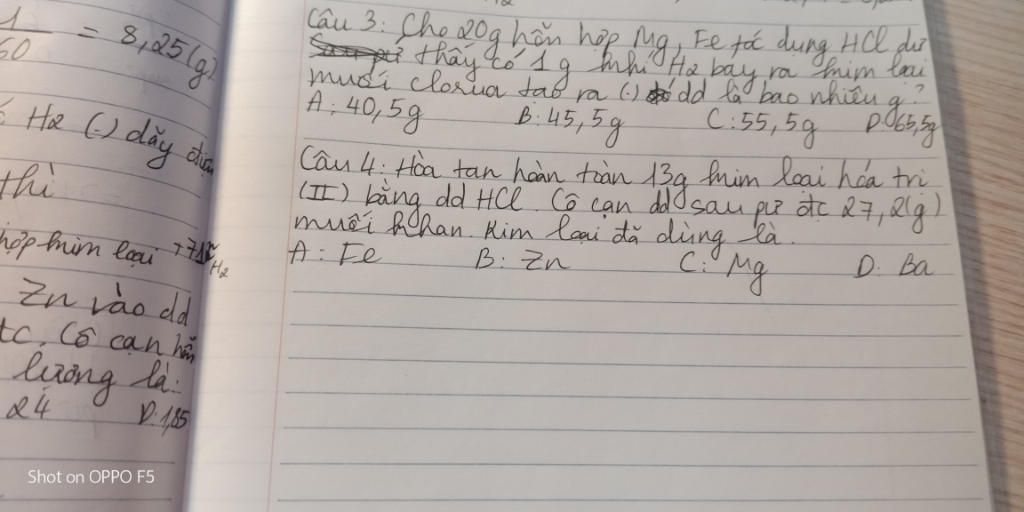 1
60 = 8,25(g)
H2 (.) dãy điện
thì
hợp kim loại +71 H2
Zn vào dd
tc. Cô cạn hỗn
lượng là:
24 D. 1,85
Câu 3: Cho 20g hỗn hợp Mg, Fe tác dụng HCl dư
thấy có 1g khí H2 bay ra kim loại
muối clorua tạo ra (.) dd là bao nhiêu g?
A: 40,5g B: 45,5g C: 55,5g D: 65,5g
Câu 4: Hòa tan hoàn toàn 13g kim loại hóa trị
(II) bằng dd HCl. Cô cạn dd sau pứ đc 27,2(g)
muối khan. Kim loại đã dùng là.
A: Fe B: Zn C: Mg D: Ba
Shot on OPPO F5